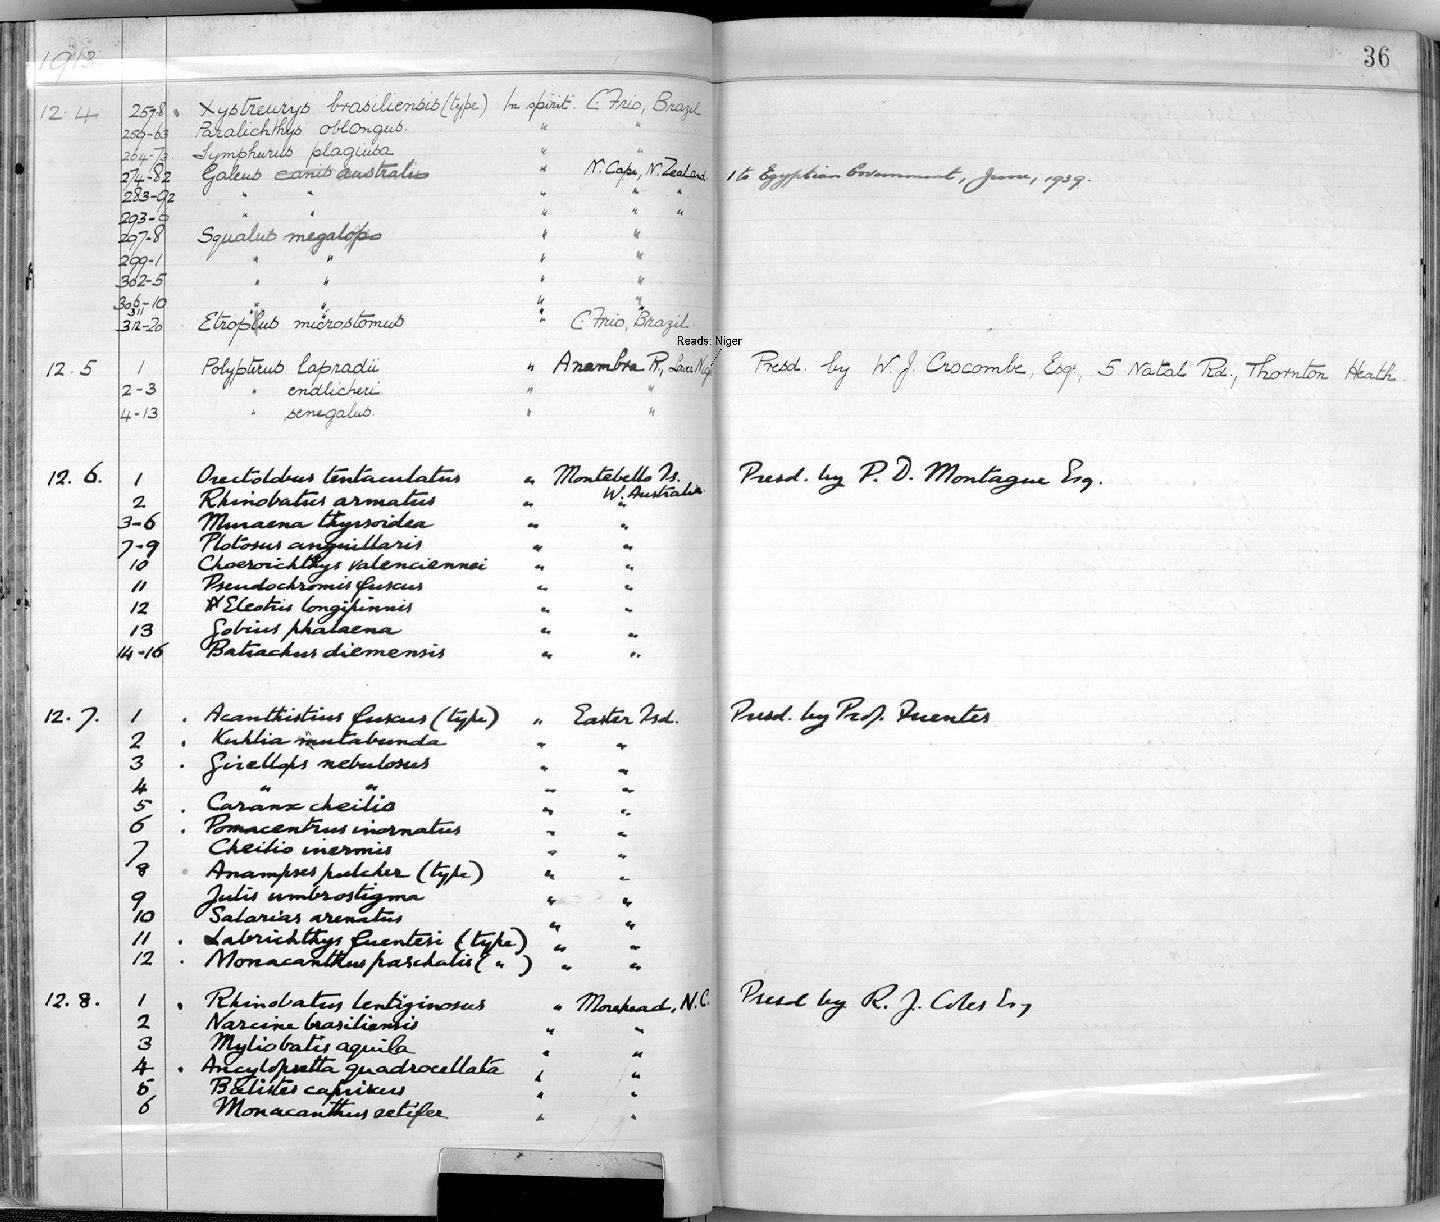 1913.
36
12.4 257-8 Xystreurys brasiliensis (type) In spirit C. Frio, Brazil
259-63 Paralichthys oblongus. " "
264-73 Symphurus plagiusa " "
274-82 Galeus canis australis " N. Cape, N. Zealand 1 to Egyptian Government, June, 1939.
283-92 " " " " "
293-6 " " " " "
297-8 Squalus megalops " "
299-1 " " " "
302-5 " " " "
306-10 " " " "
311 " " " "
312-20 Etroplus microstomus " C. Frio, Brazil.
Reads: Niger
12.5 1 Polypterus lapradii " Anambra R, Presd. by W. J. Crocombe, Esq., 5 Natal Rd., Thornton Heath.
2-3 " endlicheri " "
4-13 " senegalus. " "
12.6. 1 Orectolobus tentaculatus " Montebello Is. Presd. by P. D. Montague Esq.
W. Australia
2 Rhinobatus armatus " "
3-6 Muraena thyrsoidea " "
7-9 Plotosus anguillaris " "
10 Choeroichthys valenciennei " "
11 Pseudochromis fuscus " "
12 Eleotris longipinnis " "
13 Gobius phalaena " "
14-16 Batrachus diemensis " "
12.7. 1 . Acanthistius fuscus (type) " Easter Isd. Presd. by Prof. Fuentes
2 . Kuhlia mutabunda " "
3 . Girellops nebulosus " "
4 " " " "
5 . Caranx cheilio " "
6 . Pomacentrus inornatus " "
7 Cheilio inermis " "
8 . Anampses pulcher (type) " "
9 Julis umbrostigma " "
10 Salarias arenatus " "
11 . Labrichthys fuentesi (type) " "
12 . Monacanthus paschalis ( " ) " "
12.8. 1 . Rhinobatus lentiginosus " Morehead, N.C. Presd by R. J. Coles Esq
2 Narcine brasiliensis " "
3 Myliobatis aquila " "
4 . Ancylopsetta quadrocellata " "
5 Balistes capriscus " "
6 Monacanthus setifer " "